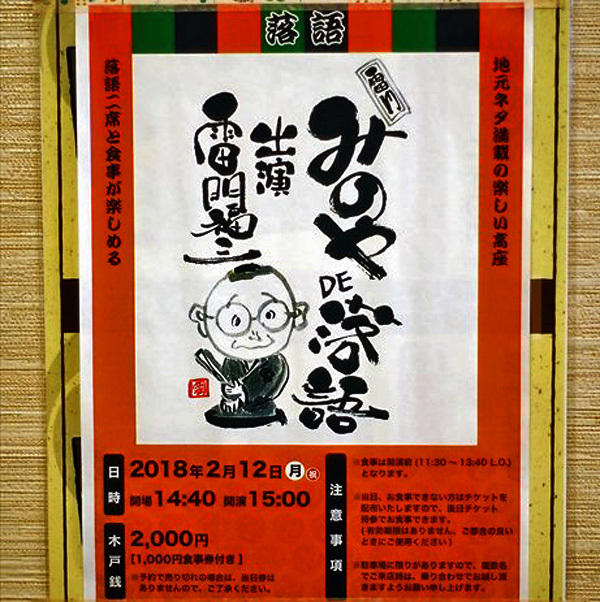 落語
地元ネタ満載の楽しい高座
みのや
DE
落語
出演
雷門福三
落語二席と食事が楽しめる
日時
2018年2月12日 月 祝
開場14:40 開演15:00
木戸銭
2,000円
[1,000円食事券付き]
※予約で売り切れの場合は、当日券は
ありませんので、ご了承ください。
注意事項
※食事は開演前(11:30〜13:40 L.O.)
となります。
※当日、お食事できない方はチケットを
配布いたしますので、後日チケット
持参でお食事できます。
(有効期限はありません、ご都合の良い
ときにご使用ください)
※駐車場に限りがありますので、複数名
でご来店時は、乗り合わせでお越し頂
きますようお願い申し上げます。